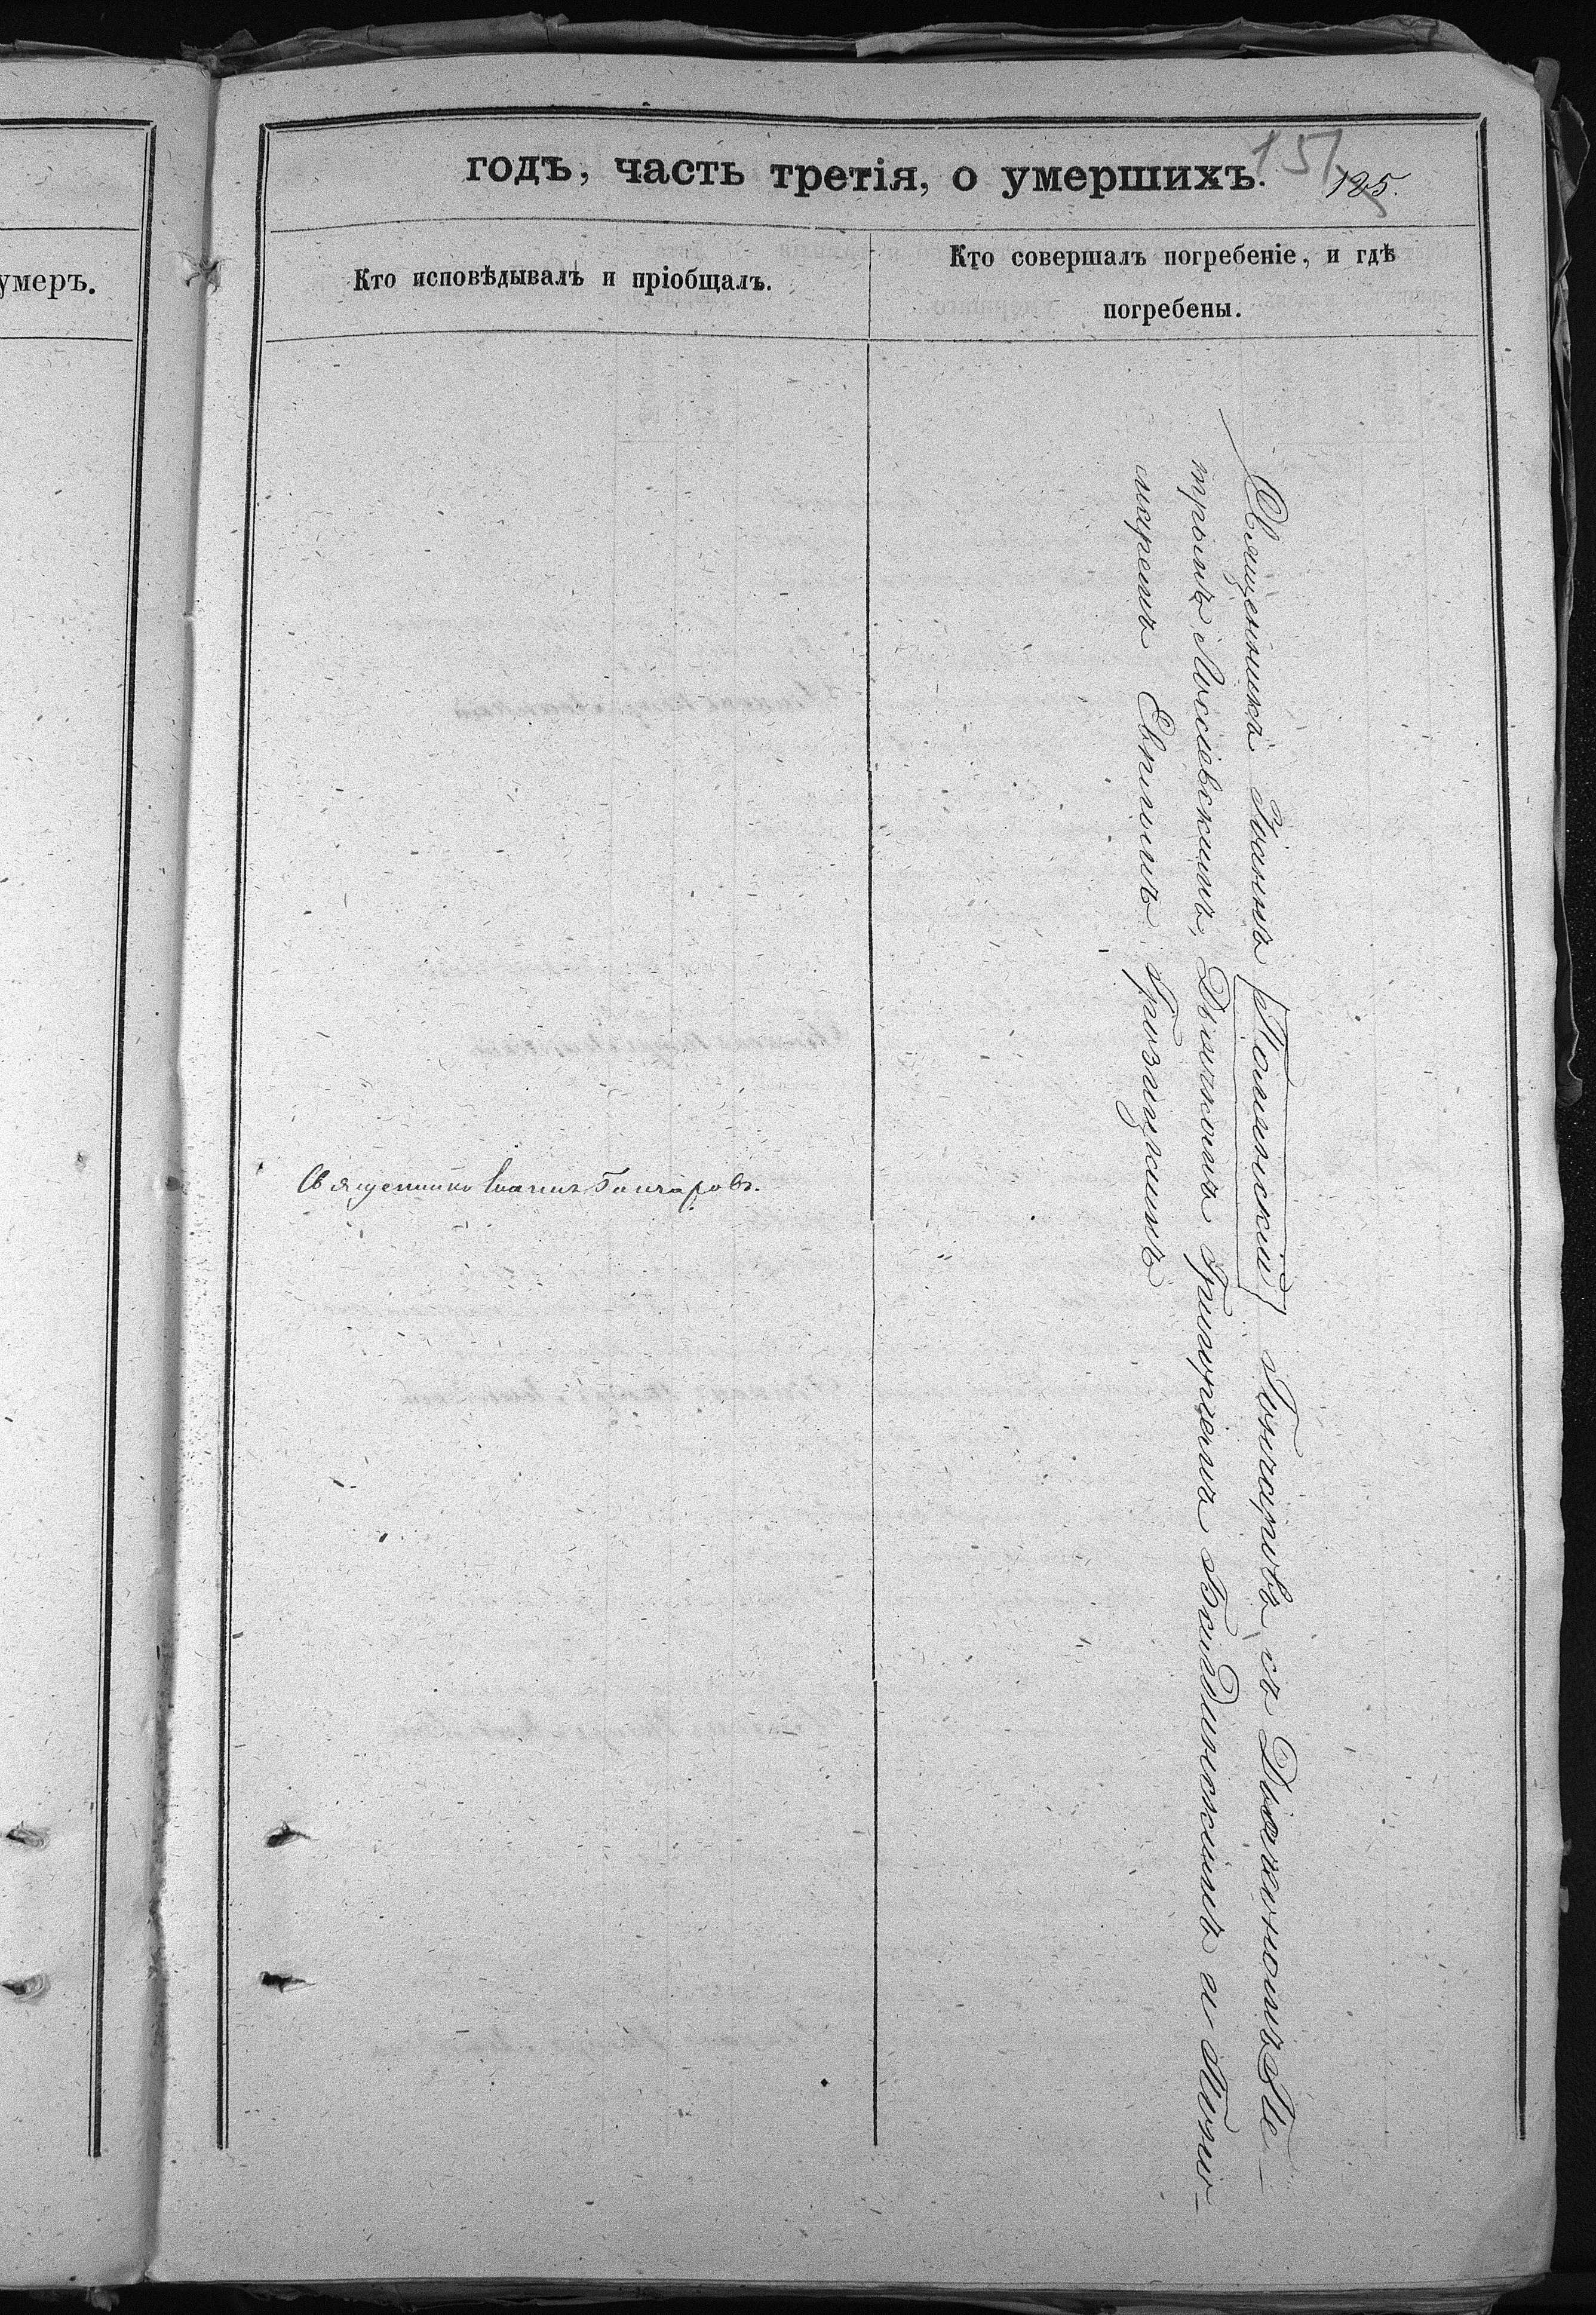 умеръ.
годъ, часть третія, о умершихъ.
151
125.
Кто исповѣдывалъ и пріобщалъ.
Кто совершалъ погребеніе, и гдѣ
погребены.
Священникъ Іоаннъ Гончаровъ.
Священникъ Іоаннъ Гончаровъ съ Діакономъ Пе-
тромъ Діячкомъ Григоріемъ и Поно-
маремъ